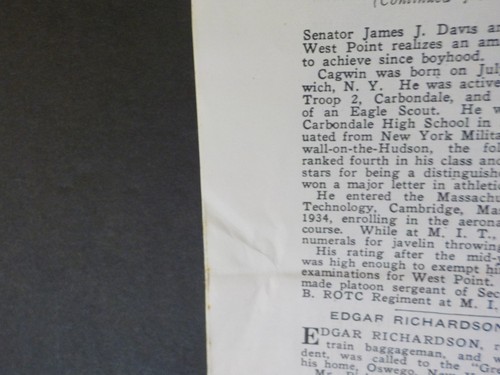 (Continued
Senator James J. Davis an
West Point realizes an am
to achieve since boyhood.
Cagwin was born on Jul
wich, N. Y. He was active
Troop 2, Carbondale, and
of an Eagle Scout. He w
Carbondale High School in
uated from New York Milita
wall-on-the-Hudson, the fol
ranked fourth in his class and
stars for being a distinguishe
won a major letter in athleti
He entered the Massachu
Technology, Cambridge, Mas
1934, enrolling in the aerona
course. While at M. I. T.,
numerals for javelin throwing
His rating after the mid-
was high enough to exempt hi
examinations for West Point.
made platoon sergeant of Sec
B. ROTC Regiment at M. I.
EDGAR RICHARDSON
EDGAR RICHARDSON, r
train baggageman, and w
dent, was called to the "Gr
his home, Oswego, New